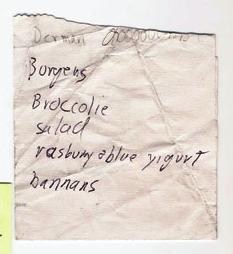 Dorman
Borgens
Broccolie
salad
rasbury & blue yigurt
bannans